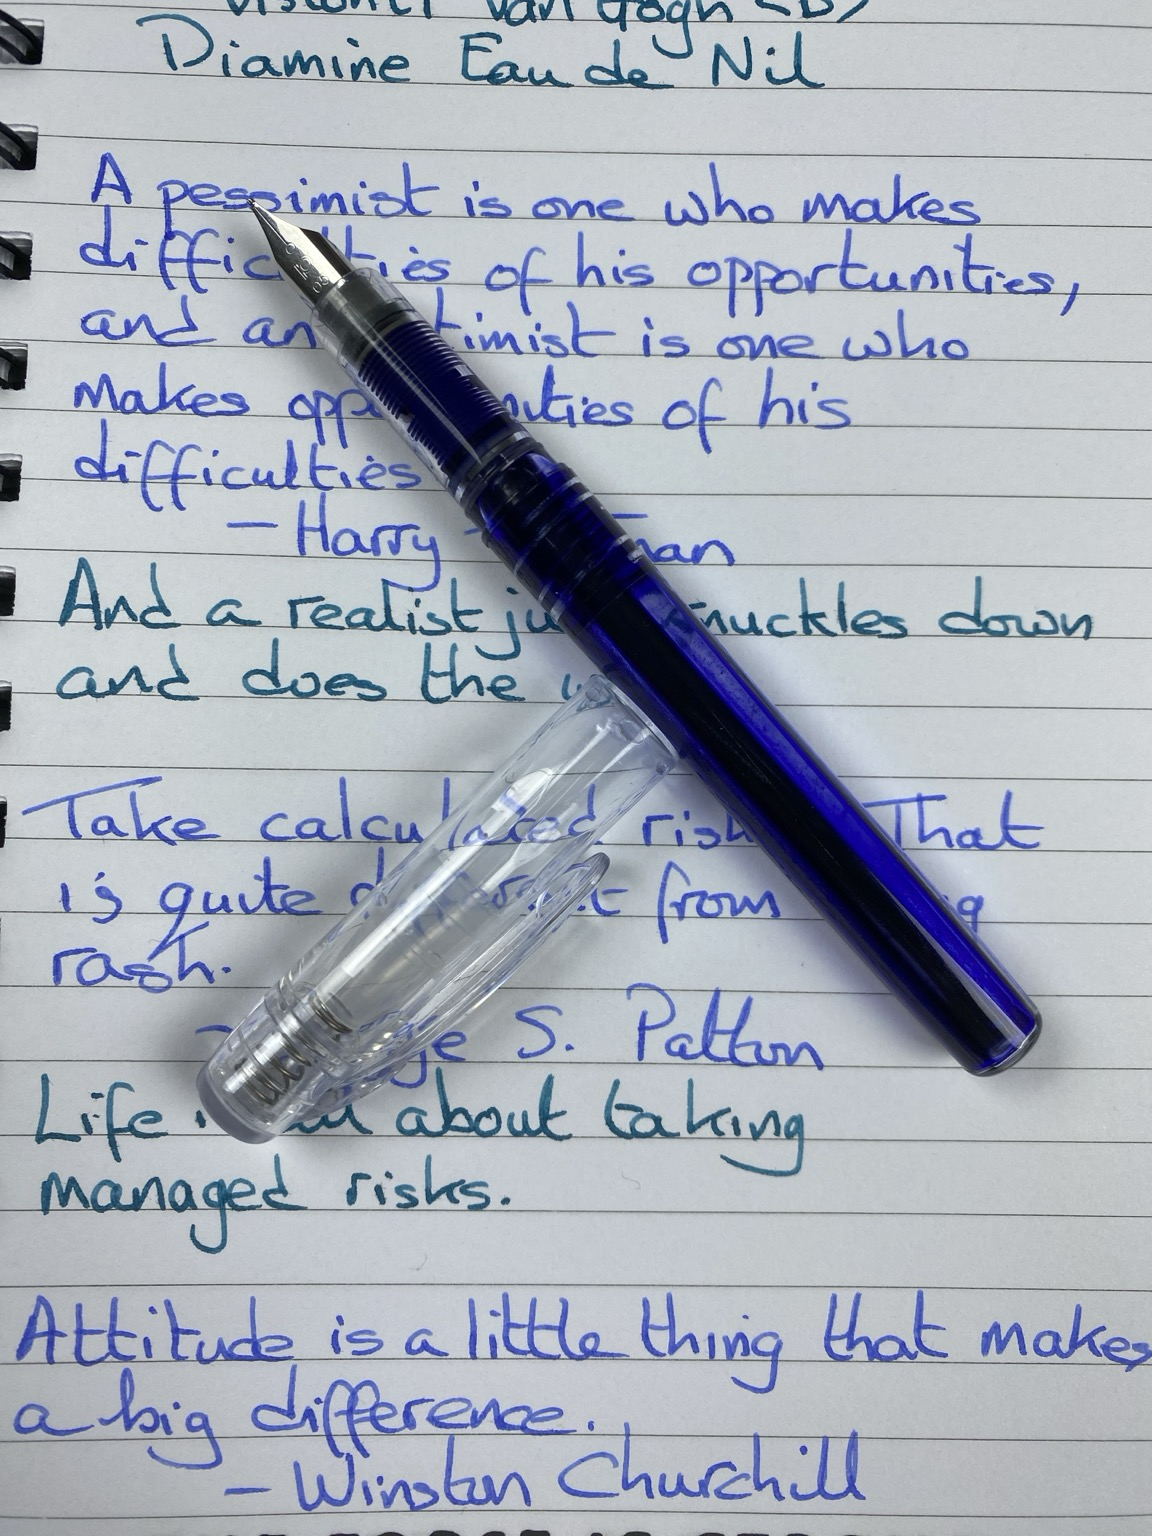 Visconti Van Gogh (B)
Diamine Eau de Nil
A pessimist is one who makes
of his opportunities,
and is one who
makes of his
difficulties
- Harry
And a realist knuckles down
and does the
Take calculated That
is quite from
rash.
S. Patton
Life about taking
managed risks.
Attitude is a little thing that makes
a big difference.
- Winston Churchill